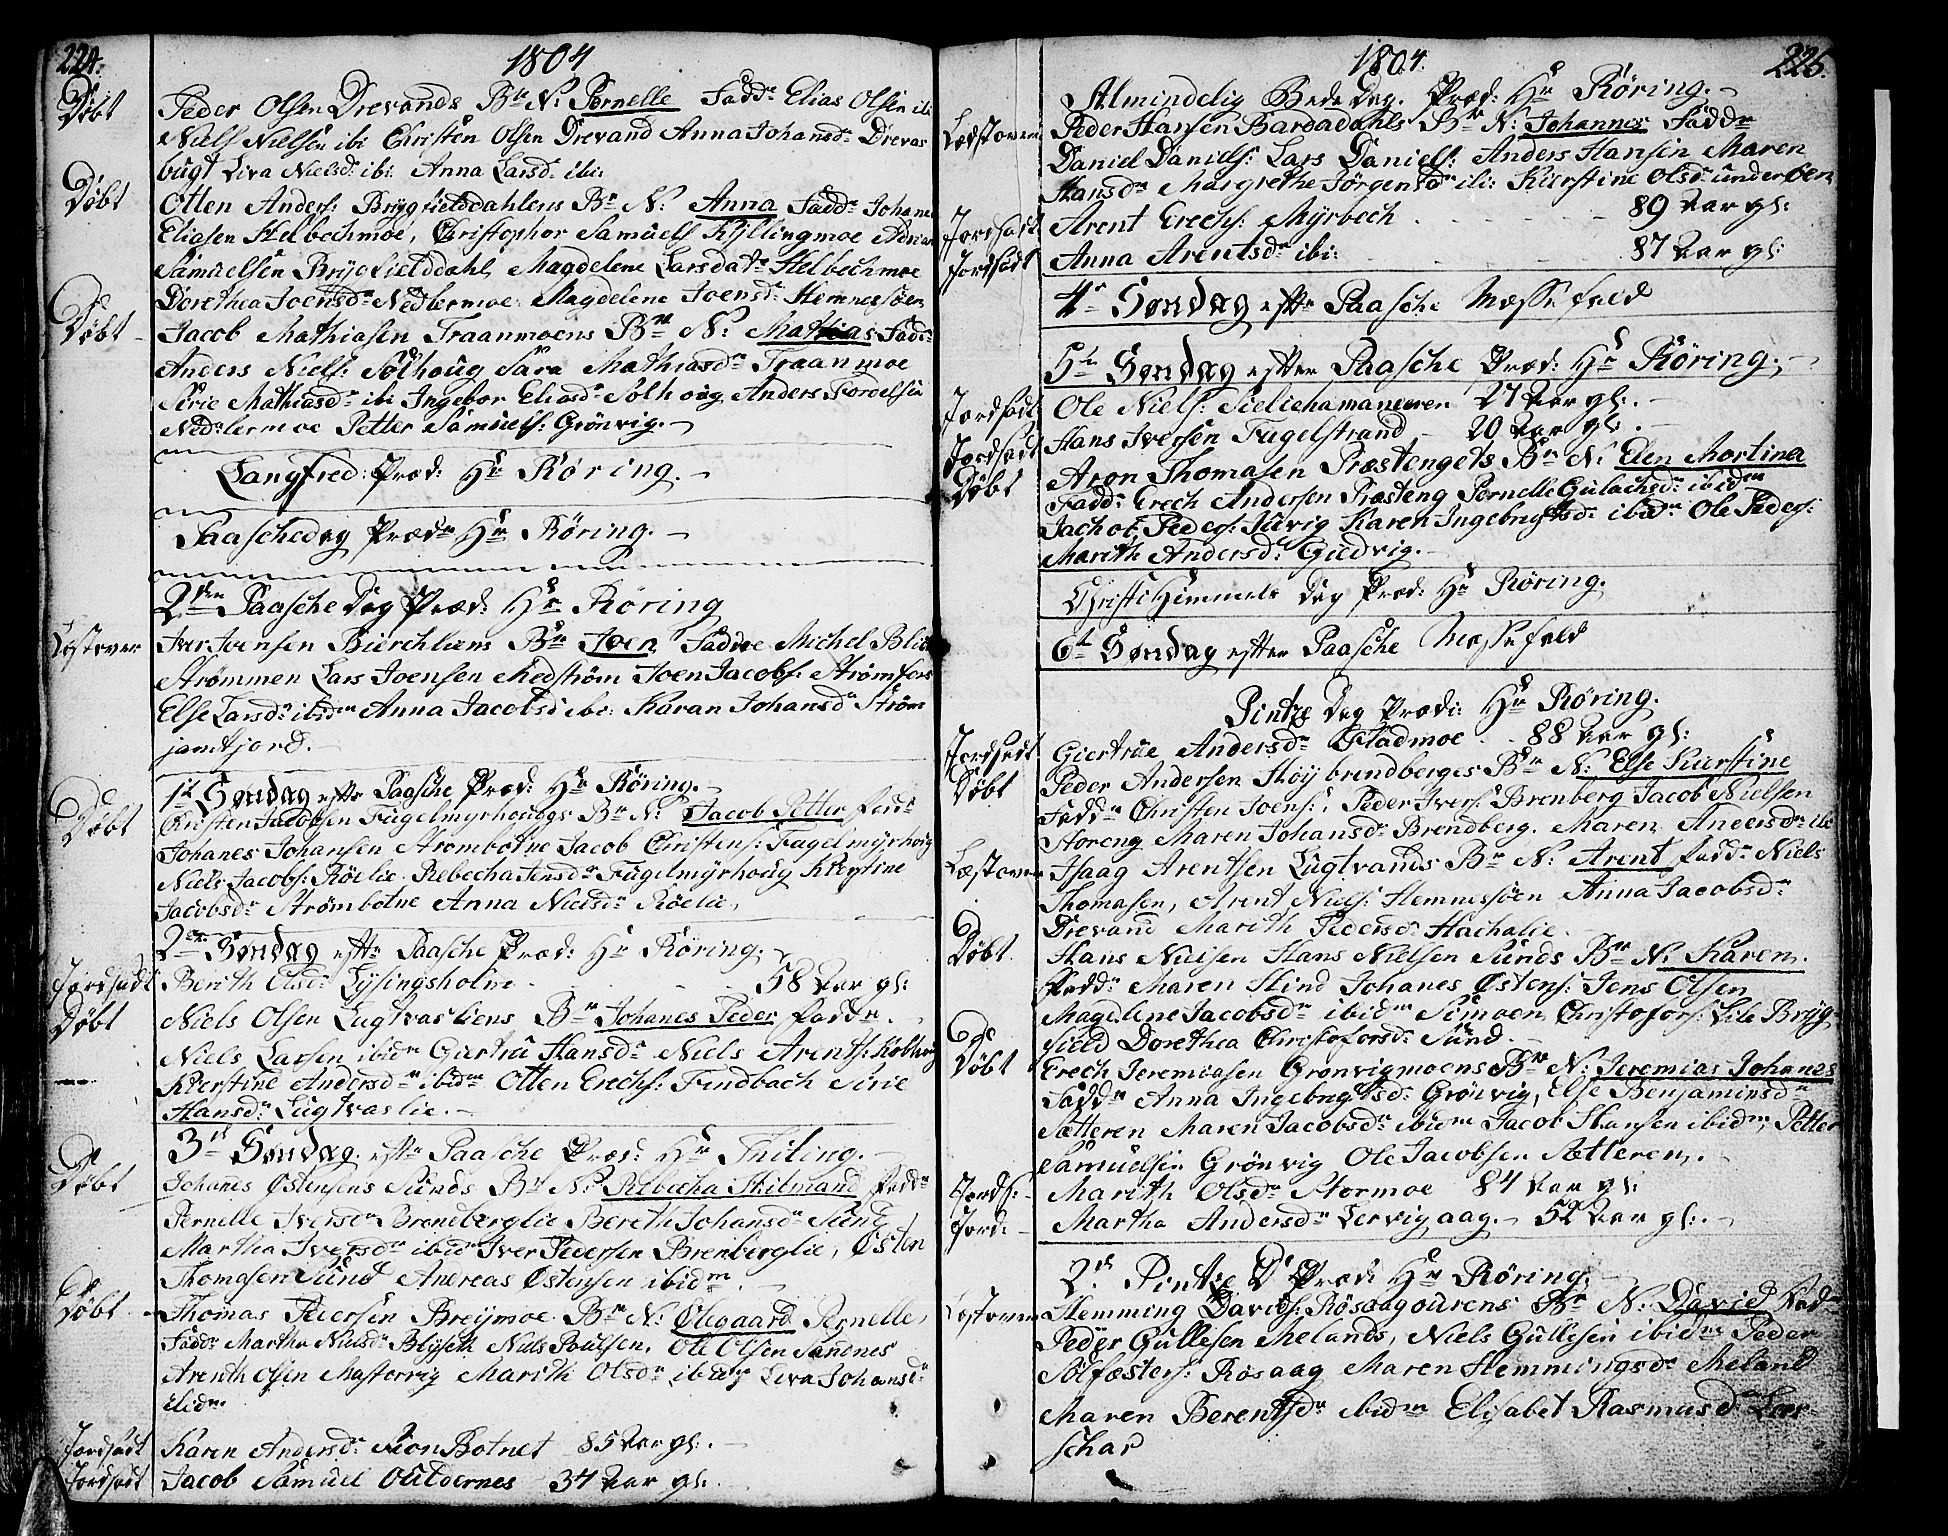 224.
1804
Døbt Peder Olsen Drevands Bn N: Pernelle Fadd: Elias Olsen ibi
Niels Nielsen ibi Christen Olsen Drevand Anna Johansd: Drevas
bugt Liva Nielsd: ibi: Anna Larsd: ibi:
Døbt Otten Anders: Brygfieldahlens Bn N: Anna Fadd: Johan
Eliasen Stelbechmoe, Christophor Samuels Kyllingmoe Adrian
Samuelsen Brygfieldahl, Magdelene Larsdatr Stelbechmoe
Dorethea Joensd: Nedlermoe Magdelene Joensd: Hemnessøen
Døbt Jacob Mathiasen Traanmoens Bn N: Mathias Fadd:
Anders Niels: Solhoug Sara Mathiasd: Traanmoe
Sirie Mathiasd: ibi Ingebor Eliasd: Solhoug Anders Tordelsen
Nedlermoe Petter Samuels: Grönvig.
Langfred: Præd: Hr Röring.
Paaschedag Præd: Hr Röring.
2den Paasche Dag Præd: Hr Röring
Læstover Iver Joensen Bierchliens Bn Joen Fadd: Michel Blic
Strømmen Lars Joensen Medström Joen Jacobs: Strømfors
Else Larsd: ibidm Anna Jacobsd ibi: Karan Johansd Ström
jamtjord.
1st Søndag efter Paasche Præd: Hr Röring.
Døbt Christen Jacobsen Fugelmyrhougs Bn N: Jacob Petter Fadd:
Johanes Johansen Strombotne Jacob Christens: Fugelmyrhoug
Niels Jacobs: Röelie Rebecha Jensd: Fugelmyrhoug Kierstine
Jacobsd: Strömbotne Anna Nielsd: Röelie,
2en Søndag efter Paasche Præd: Hr Röring.
Jordfæst Berith Olsd: Lysingsholm 58 Aar gl:
Døbt Niels Olsen Lugtvasliens Bn Johanes Peder Fadd:
Niels Larsen ibidm Giertru Hansd: Niels Arents:
Kierstine Andersd: ibidm Otten Erechs: Findbach Sirie
Hansd: Lugtvaslie.
3d Søndag efter Paasche Præd: Hr
Døbt Johanes Østensens Sunds Bn N: Rebecha Fadd:
Pernelle Iversd: Brendberglie Bereth Johansd: Sund
Martha Iversd: ibid Iver Pedersen Brenberglie, Østen
Thomasen Sund Andreas Østensen ibidm.
Døbt Thomas Pedersen Breymoe Bn N: Olegaard Pernelle,
Fadd: Martha Nielsd: Niels Poulsen, Ole Olsen Sandnes
Arenth Olsen Mastervig Marith Olsd: ibid Liva Johansd:
ibidm
Jordfæst Karen Andersd: Botnet 85 Aar gl:
Jordfæst Jacob Samuel 34 Aar gl:
1804.
225.
Almindelig Bede Dag. Præd: Hr Röring.
Læstover Peder Hansen Bardadahls Bn N: Johannes Fadd:
Daniel Daniels: Lars Daniels: Anders Hansen Maren
Hansd: Margrethe Jörgensd: ibi: Kierstine Olsd:
Jordfæst Arent Erechs: Myrbech 89 Aar gl:
Jordfæst Anna Arentsd: ibi: 87 Aar gl:
4d Søndag efter Paasche Messefald
5te Søndag efter Paasche Præd: Hr Röring.
Jordfæst Ole Niels: 27 Aar gl:
Jordfæst Hans Iversen Fugelstrand 20 Aar gl:
Døbt Aron Thomasen Præstengets Bn N: Elen Martina
Fadd: Erech Andersen Præsteng Pernelle Gulachsd: ibidm
Jachob Peders: Karen Ingebrigtsd: ibidm Ole Peders:
Marith Andersd: Gudvig.
Christi Himmels Dag Præd: Hr Röring.
6te Søndag efter Paasche Messefald
Pintze Dag Præd: Hr Röring.
Jordfæst Giertrue Andersd: Fladmoe 88 Aar gl:
Døbt Peder Andersen Høybrendberges Bn N: Else Kierstine
Fadd: Christen Joens: Peder Ivers: Brenberg Jacob Nielsen
Storeng Maren Johansd: Brendberg. Maren Andersd: ibi
Læstover Isaag Arentsen Lugtvands Bn N: Arent Fadd: Niels
Thomasen, Arent Niels: Hemnessöen Anna Jacobsd:
Drevand Marith Pedersd: Hachalie.
Døbt Hans Nielsen Hans Nielsen Sunds Bn N: Karen.
Fadd: Maren Johanes Østens: Jens Olsen
Magdelene Jacobsd: ibidm Simoen Christofors: Lile Bryg
field Dorethea Christofersd: Sund.
Døbt Erech Jeremiasen Grönvigmoens Bn N: Jeremias Johanes
Fadd: Anna Ingebrigtsd: Grönvig, Else Benjaminsd:
Sætteren Maren Jacobsd: ibidm Jacob Hansen ibidm, Petter
Samuelsen Grönvig Ole Jacobsen Sætteren.
Jordf: Marith Olsd: Stormoe 84 Aar gl:
Jord: Martha Andersd: Lervigaag. 52 Aar gl:
2d Pintze D Præd: Hr Röring.
Læstover Hemming Davids: Rösaagourens Bn N: David Fadd:
Peder Gullesen Melands, Niels Gullesen ibidm Peder
Sølfæsters: Røsaag Maren Hemmingsd: Meland
Maren Berentsd: ibidm Elisabet Rasmusd: Lar
schar